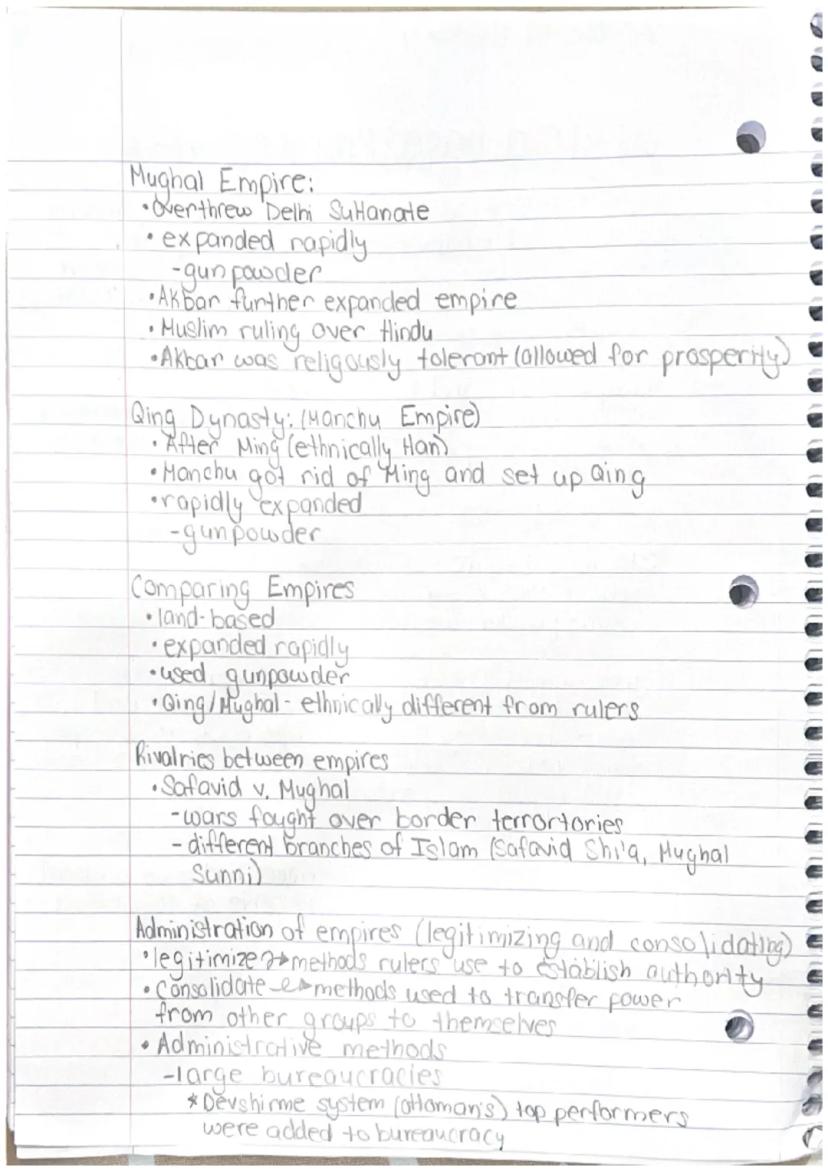 Mughal Empire:
•overthrew Delhi Sultanate
• expanded rapidly
-gunpowder
•Akbar further expanded empire
• Muslim ruling over Hindu
•Akbar was religously tolerant (allowed for prosperity)
Qing Dynasty: (Manchu Empire)
• After Ming (ethnically Han)
•Manchu got rid of Ming and set up Qing
•rapidly expanded
-gunpowder
Comparing Empires
•land-based
•expanded rapidly
•used gunpowder
•Qing/Mughal - ethnically different from rulers
Rivalries between empires
•Safavid v. Mughal
-wars fought over border terrortories
-different branches of Islam (Safavid Shi'a, Mughal
Sunni)
Administration of empires (legitimizing and consolidating)
•legitimize → methods rulers use to establish authority
•Consolidate → methods used to transfer power
from other groups to themselves
• Administrative methods
-large bureaucracies
*Devshirme system (ottoman's) top performers
were added to bureaucracy